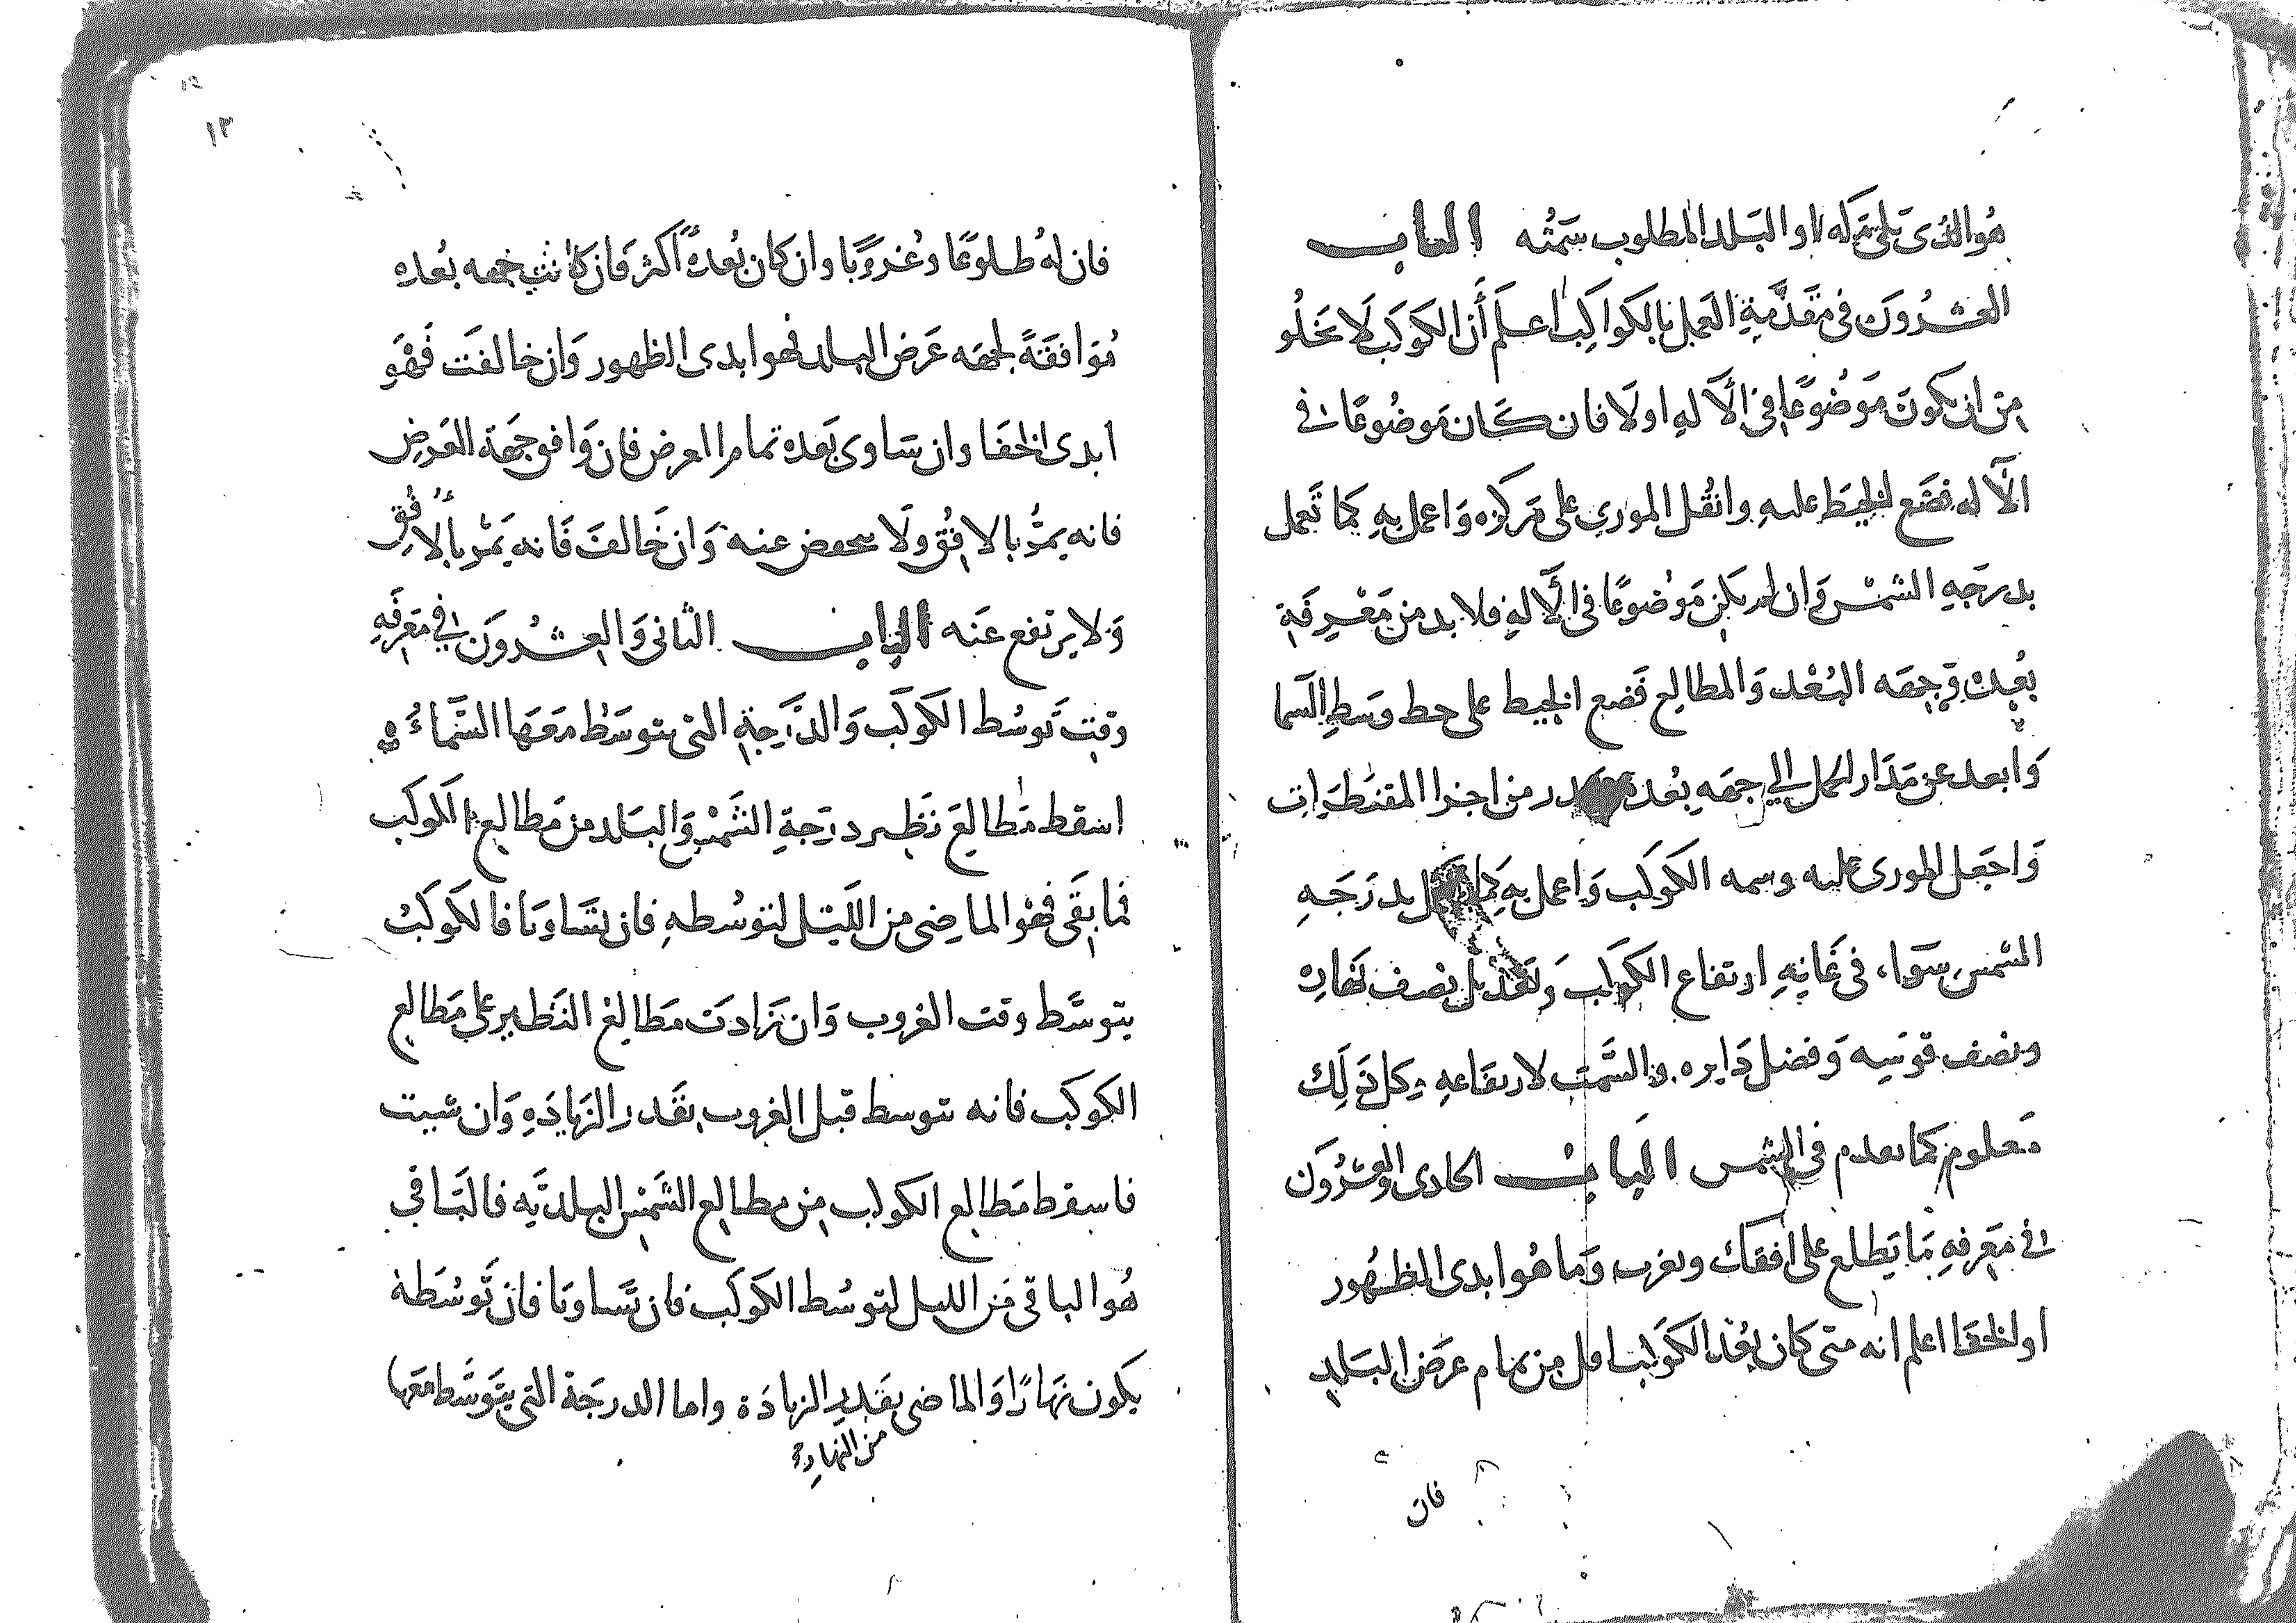 هُوَ الذى يلى مكه او البلد المطلوب سمته الباب
العشرُونَ فى مقدَّمةِ العَمل بالكواكِب اعلَم أن الكوكب لا يخلُو
من ان يكونَ مَوضُوعًا فى الآلهِ اولَا فان كَان مَوضُوعًا فى
الآله فضَع الخيطَ عليهِ وانقُل المورى على مركزه وَاعمل بهِ كما تَعمل
بدرجَهِ الشمس وَان لم يكن مَوضُوعًا فى الآلهِ فلا بد من مَعْرِفَة
بُعِده وَجهَه البُعْد وَالمطالع فَضع الخيط على خط وسَطِ السَما
وَابعد عن مَدَار الحمل الى جهَه بُعده در من اجزا المقنطَرات
وَاجعَل المورى عليه وسمه الكوكب وَاعمل بهِ كما تعمل بدرَجَهِ
الشمس سَوَا، فى غَايهِ ارتفاع الكوكب وَتعديل نصف نهَارِه
ونصف قوسِه وَفضل دَايره والسَّمت لارتفاعهِ وكل ذَلِكَ
مَعلوم كما تقدم فى الشمس البَاب الحادى والعشرُونَ
فى مَعرِفهِ مَا يَطلع على افقك ويغرب وَما هُوا بدى الظهُور
او الخفا اعلم انه متى كان بُعْد الكوَكب اقل من تمام عرَض البَلدِ
فان
فان لهُ طلوعًا وغُروبًا وان كان بُعدهُ أكثر فَان كانت جهه بُعده
مُوَافقَةً لجهَه عَرض البلد فهوا بدى الظهور وَان خالفَت فَهْوَ
ابدى الخفا وان سَاوى بَعده تمام العرض فان وَافق جهَة العَرض
فانه يمرُّ بالافُق ولَا ينخفض عنه وَان خَالفَ فَانه يَمُر بالأفُق
وَلا يرتفع عَنه الباب الثانى وَالعشرُونَ فى مَعرفَهِ
وَقتِ تَوسُط الكَوكَب وَالدَّرَجَةِ التى يتوسَط مَعهَا السَّمَاءُ
اسقط مَطالعَ نَظير درَجَةِ الشَمْس وَالبَلد من مَطالع الكوكب
فما بقَى فهْوَ الماضِى من اللَيل لتوسُطهِ فان تسَاويَا فالكوكَبْ
يتوسَّط وقت الغروب وَان زَادَت مَطَالع النَظير على مَطالع
الكوكَب فانه يتوسط قبل الغروب بقَدر الزيَادَهِ وَان شيت
فاسقط مَطَالع الكوكب من مطالع الشَمْس البلديَّه فالبَاقى
هُوَ الباقى مَن الليل لتوسُط الكَوكَب فان تَساويَا فان تَوسُطَهُ
يكون نهَارًا وَالماضى بقَدرِ الزيادَة واما الدرجَة التى يتَوسَّط معَها
من النهار
١٢